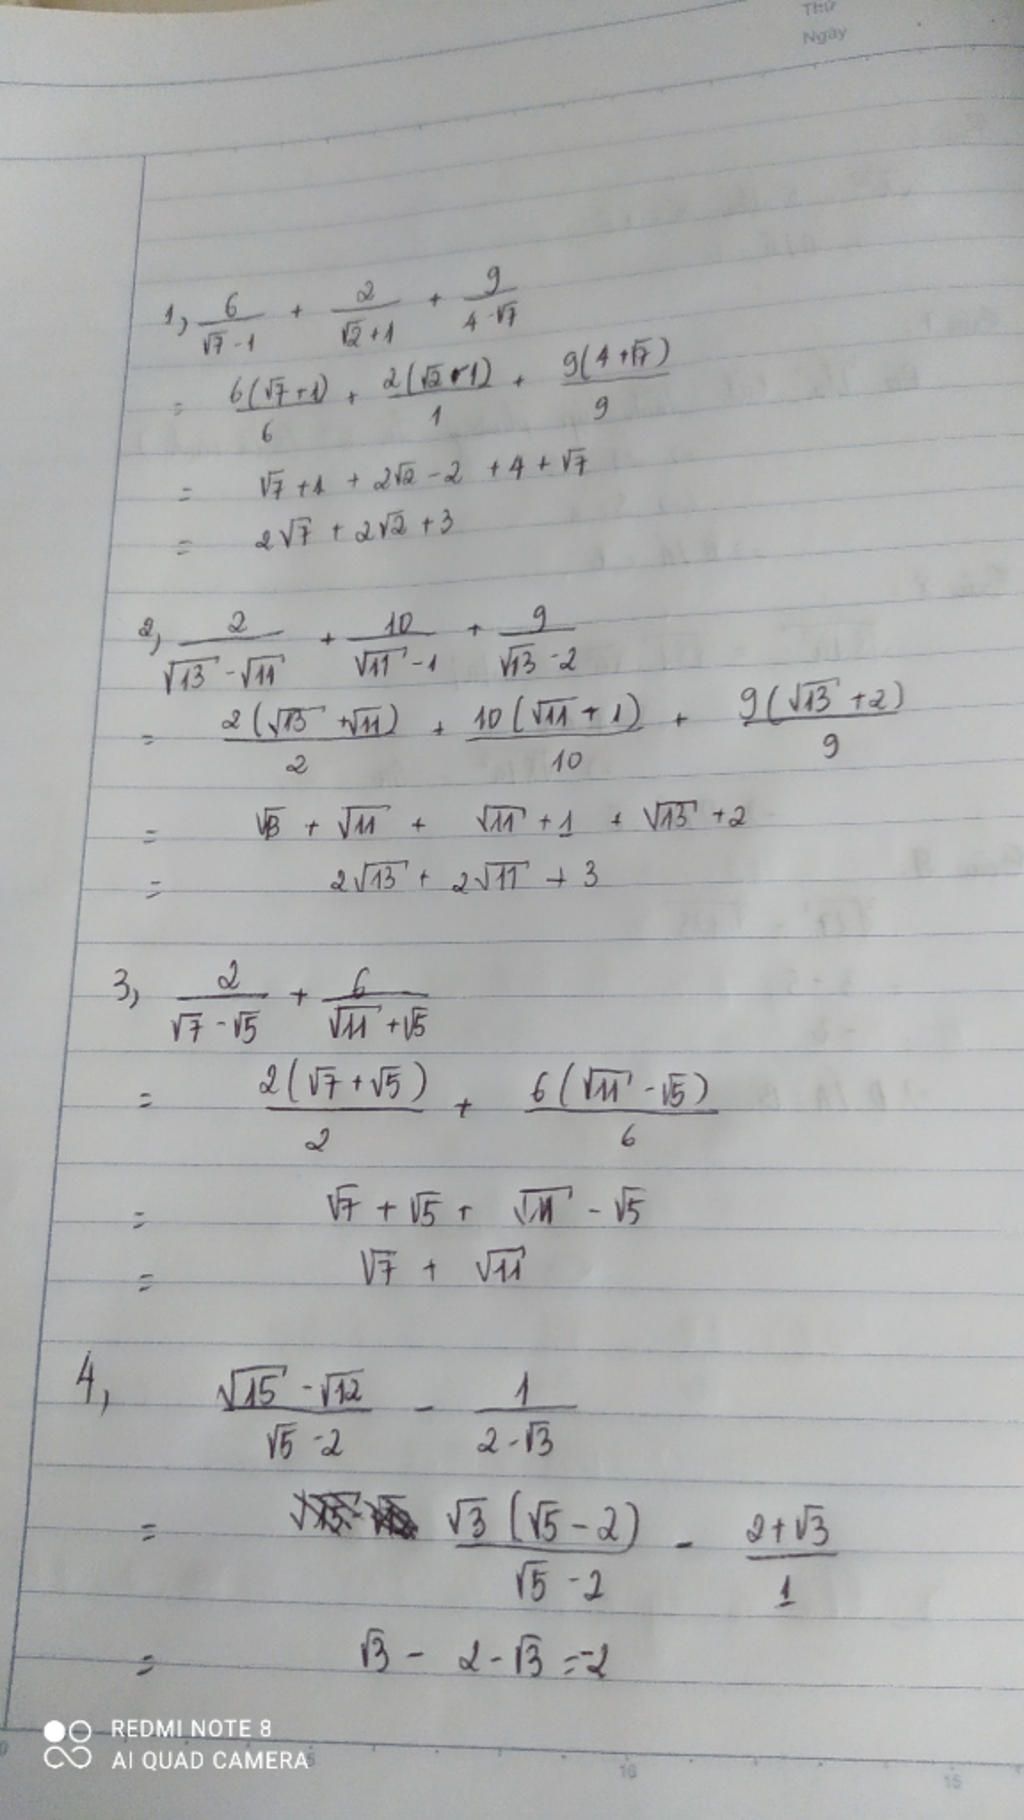 Thứ
Ngày
1, 6/(√7-1) + 2/(√2+1) + 9/(4-√7)
= 6(√7+1)/6 + 2(√2-1)/1 + 9(4+√7)/9
= √7+1 + 2√2-2 + 4+√7
= 2√7 + 2√2 + 3
2, 2/(√13-√11) + 10/(√11-1) + 9/(√13-2)
= 2(√13+√11)/2 + 10(√11+1)/10 + 9(√13+2)/9
= √13 + √11 + √11+1 + √13+2
= 2√13 + 2√11 + 3
3, 2/(√7-√5) + 6/(√11+√5)
= 2(√7+√5)/2 + 6(√11-√5)/6
= √7 + √5 + √11 - √5
= √7 + √11
4, (√15-√12)/(√5-2) - 1/(2-√3)
= √3(√5-2)/(√5-2) - (2+√3)/1
= √3 - 2-√3 = -2
REDMI NOTE 8
AI QUAD CAMERA
16
15